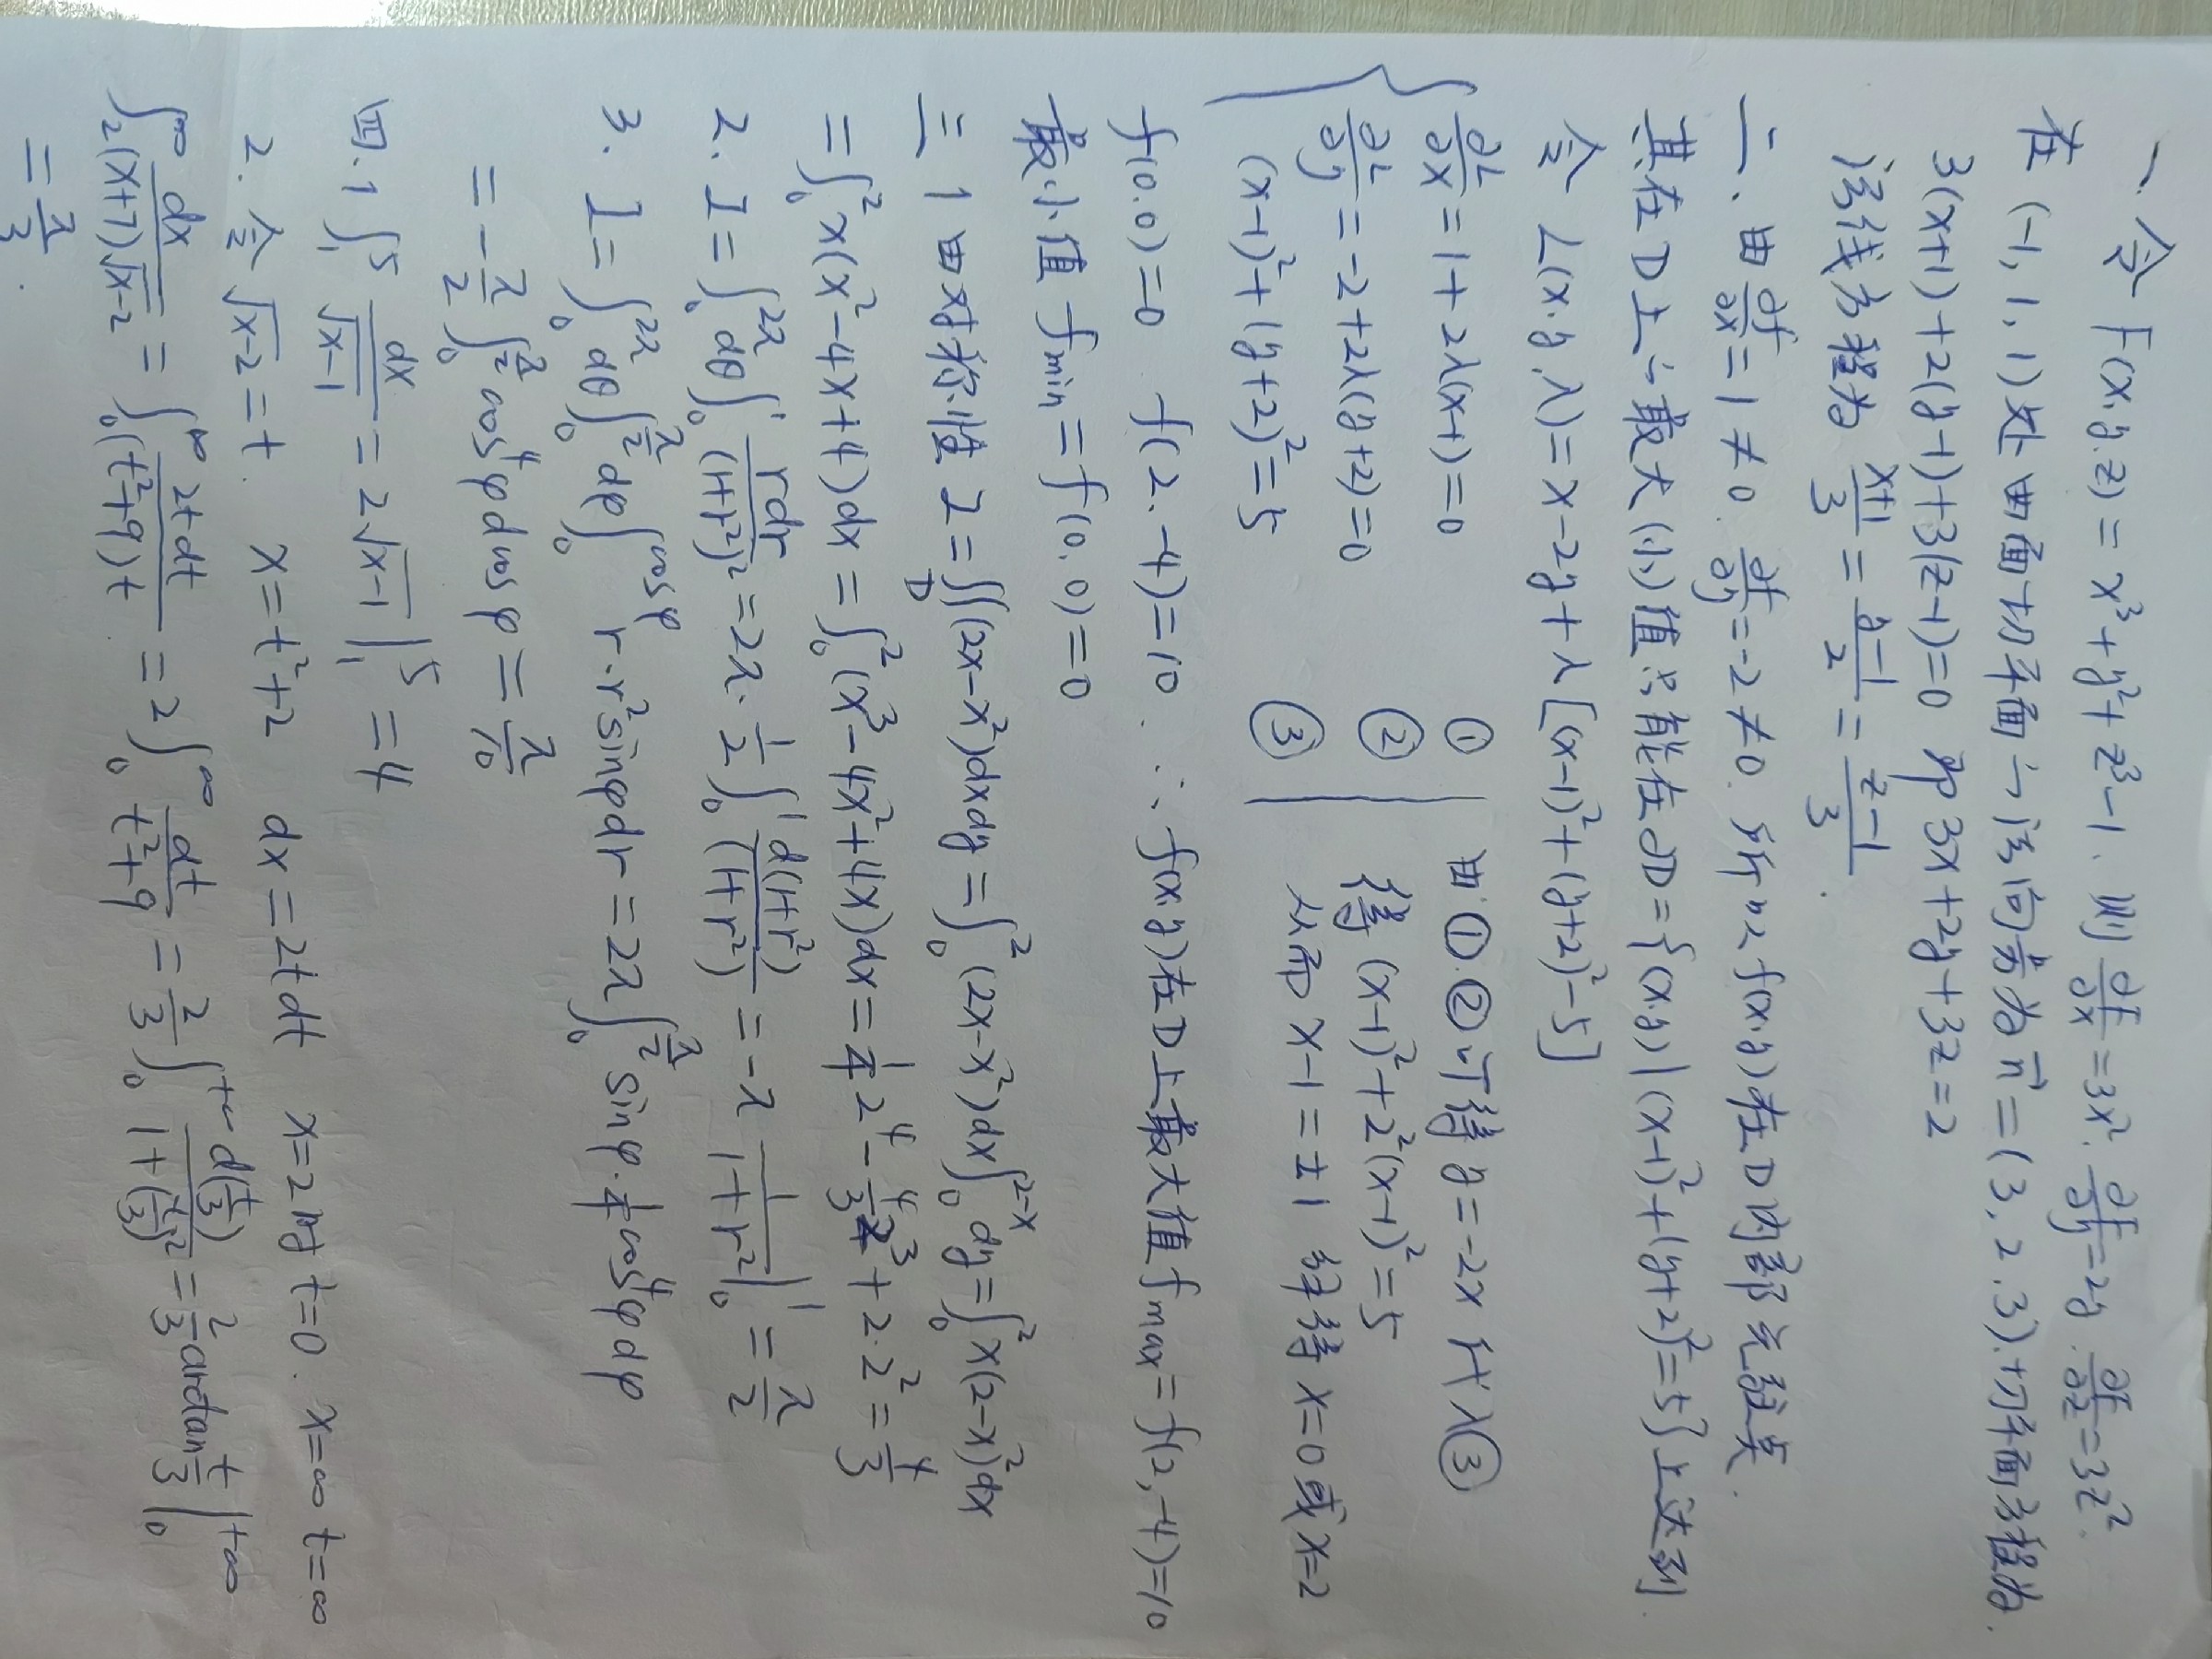 一.令 F(x,y,z)=x³+y²+z³-1. 则 ∂F/∂x=3x². ∂F/∂y=2y. ∂F/∂z=3z².
在 (-1,1,1)处曲面切平面的法向量为 n⃗=(3,2,3).切平面方程为.
3(x+1)+2(y-1)+3(z-1)=0 即 3x+2y+3z=2
法线方程为 (x+1)/3=(y-1)/2=(z-1)/3.
二、由 ∂f/∂x=1≠0. ∂f/∂y=-2≠0. 所以 f(x,y)在D内部无驻点.
其在D上的最大(小)值只能在∂D={(x,y)|(x-1)²+(y+2)²=5}上达到.
令 L(x,y,λ)=x-2y+λ[(x-1)²+(y+2)²-5]
∂L/∂x=1+2λ(x-1)=0 ① 由①.②可得 y=-2x 代入③
∂L/∂y=-2+2λ(y+2)=0 ② 得 (x-1)²+2²(x-1)²=5
(x-1)²+(y+2)²=5 ③ 从而 x-1=±1 解得 x=0或x=2
f(0,0)=0 f(2,-4)=10. ∴ f(x,y)在D上最大值 fmax=f(2,-4)=10
最小值 fmin=f(0,0)=0
三 1 由对称性 I=∬_D(2x-x²)dxdy=∫₀²(2x-x²)dx∫₀^(2-x)dy=∫₀²x(2-x)²dx
=∫₀²x(x²-4x+4)dx=∫₀²(x³-4x²+4x)dx=1/4 2⁴-4/3 2³+2·2²=4/3
2. I=∫₀^(2π)dθ∫₀¹ rdr/(1+r²)²=2π·1/2∫₀¹ d(1+r²)/(1+r²)=-π 1/(1+r²)|₀¹=π/2
3. I=∫₀^(2π)dθ∫₀^(π/2)dφ∫₀^(cosφ) r·r²sinφdr=2π∫₀^(π/2)sinφ·1/4cos⁴φdφ
=-π/2∫₀^(π/2)cos⁴φdcosφ=π/10
四.1 ∫₁⁵ dx/√(x-1)=2√(x-1)|₁⁵=4
2. 令√(x-2)=t. x=t²+2 dx=2tdt x=2时t=0. x=∞ t=∞
∫₂^∞ dx/((x+7)√(x-2))=∫₀^∞ 2tdt/((t²+9)t)=2∫₀^∞ dt/(t²+9)=2/3∫₀^(+∞) d(t/3)/(1+(t/3)²)=2/3arctan t/3|₀^(+∞)
=π/3.